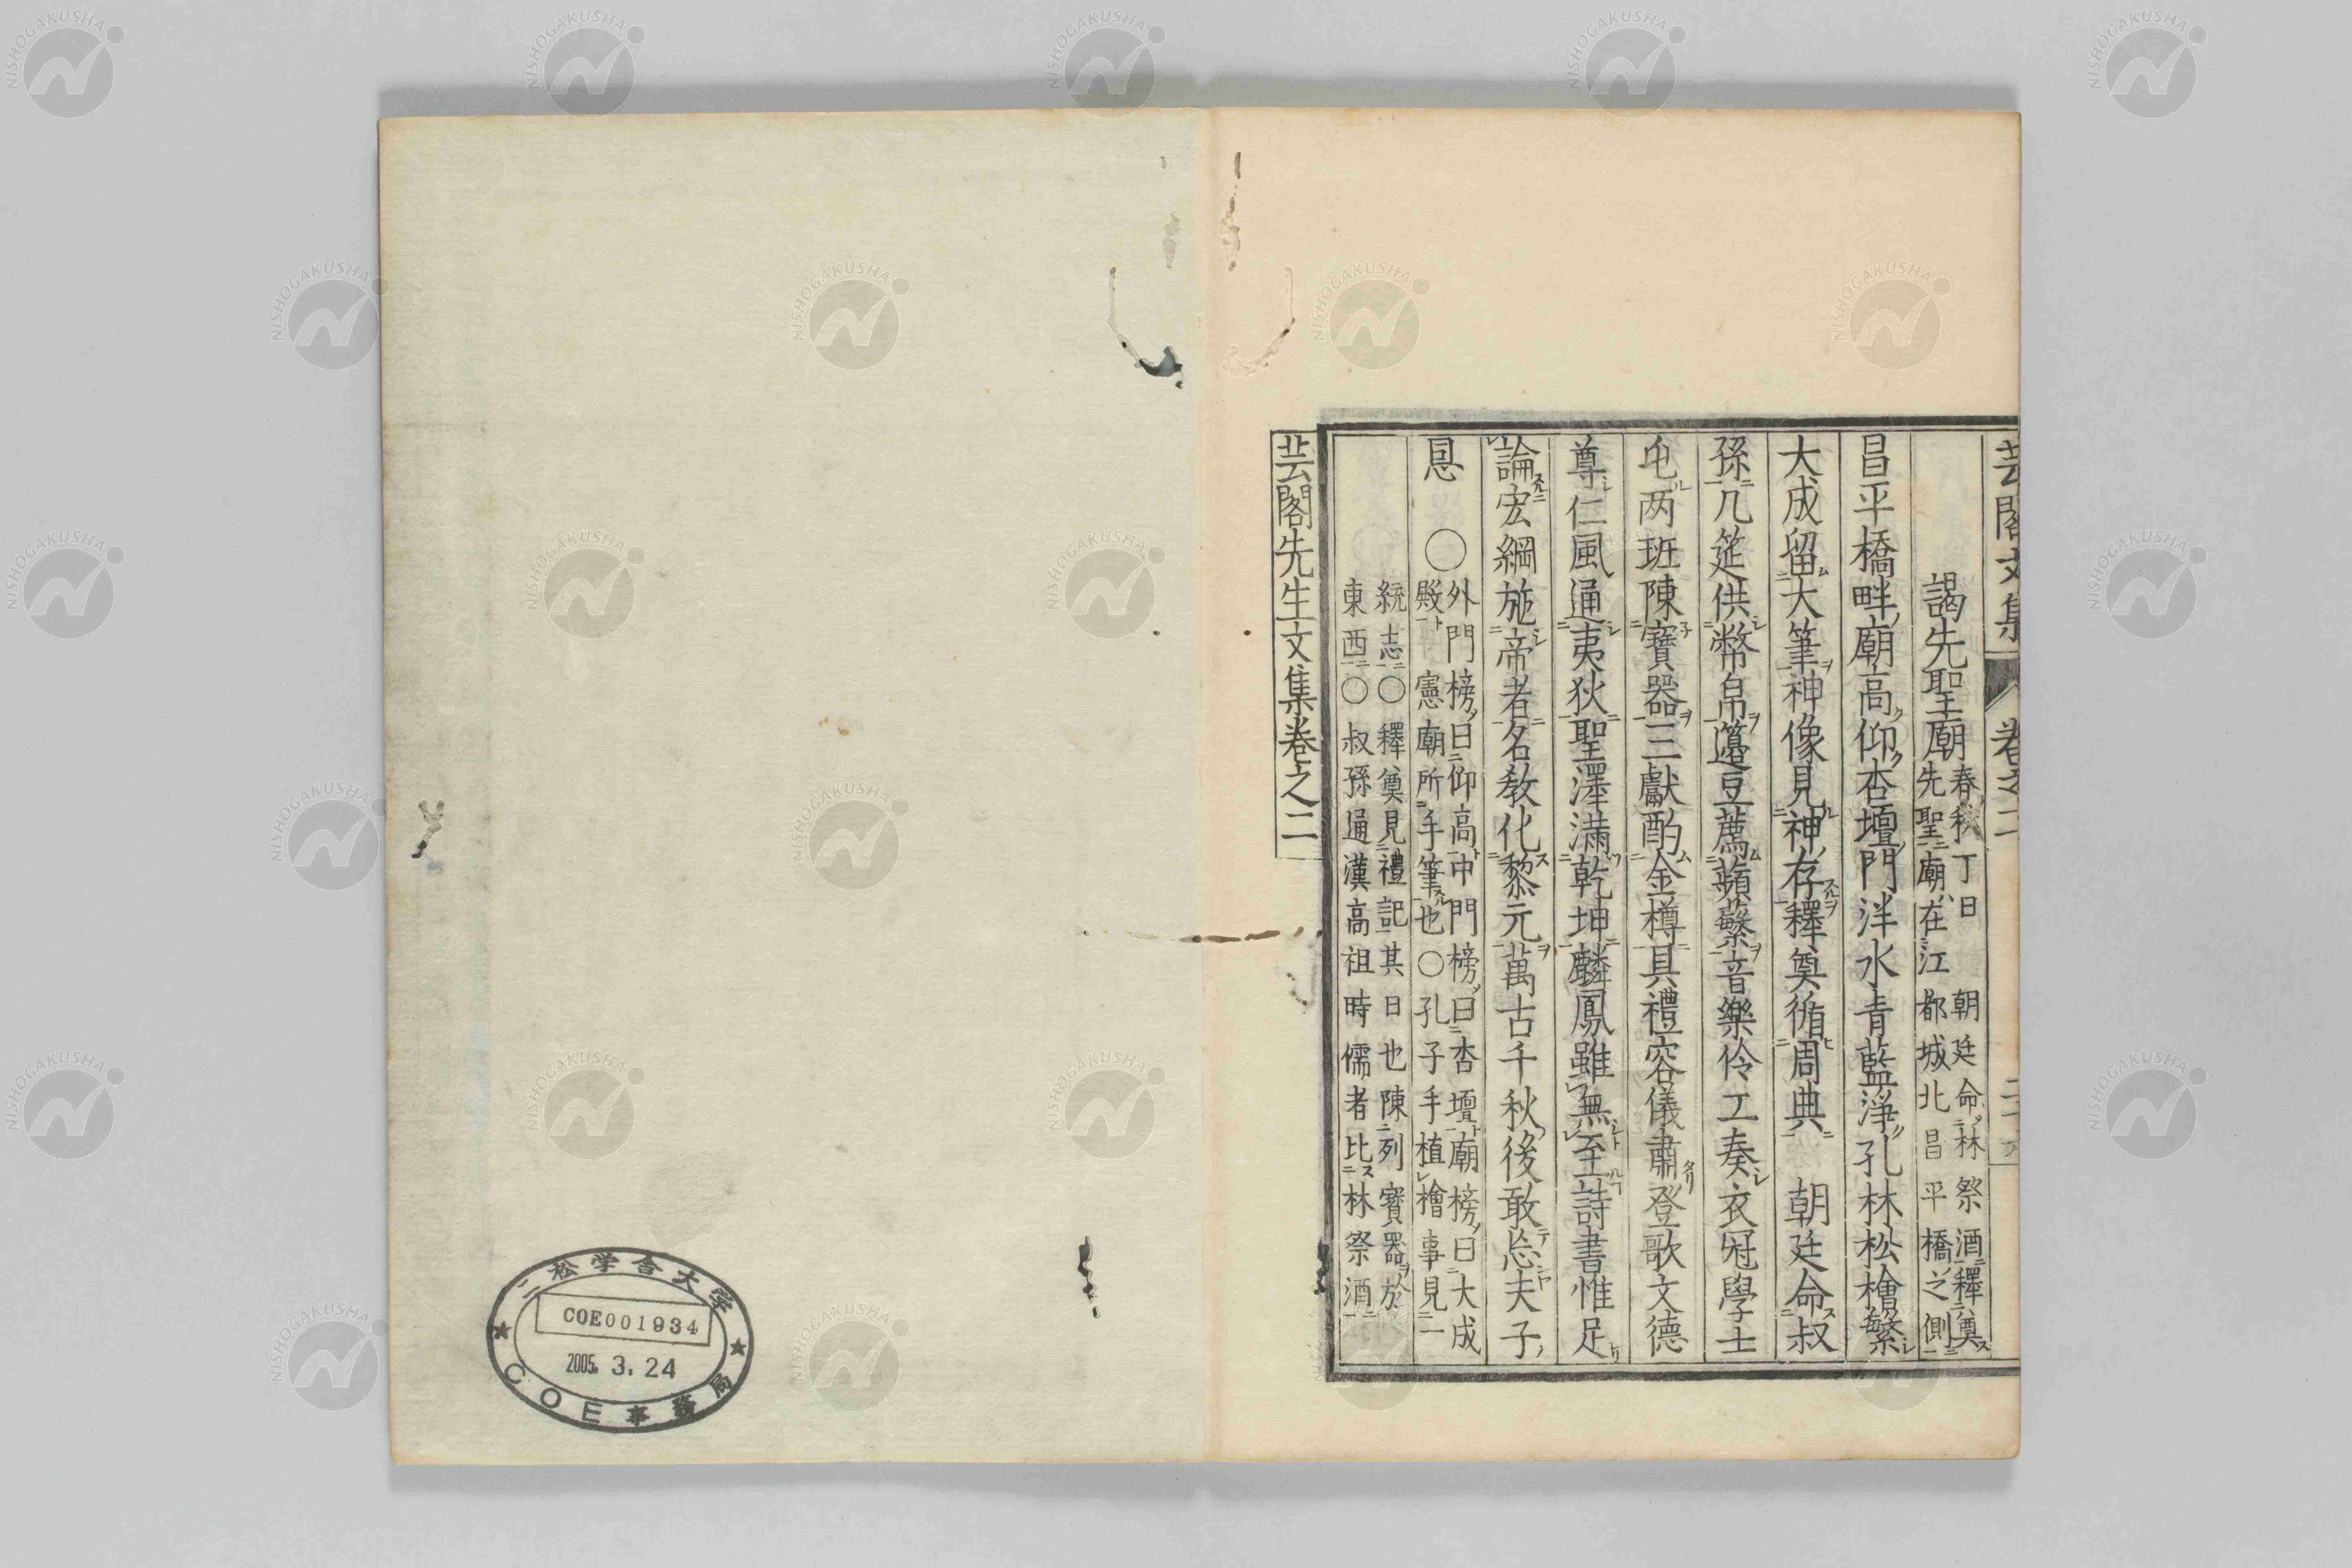 芸閣文集 卷之二
謁先聖廟 春秋丁日 朝廷命林祭酒釋奠
先聖廟在江都城北昌平橋之側
昌平橋畔廟高仰杏壇門泮水青藍淨孔林松檜繁
大成留大筆神像見神存釋奠循周典 朝廷命叔
孫几筵供幣帛籩豆薦蘋蘩音樂伶工奏衣冠學士
屯両班陳寶器三獻酌金樽具禮容儀肅登歌文德
尊仁風通夷狄聖澤滿乾坤麟鳳雖無至詩書惟足
論宏綱施帝者名教化黎元萬古千秋後敢忘夫子
恩 ○ 外門榜曰仰高中門榜曰杏壇廟榜曰大成
殿 憲廟所手筆也○孔子手植檜事見一
統志○釋奠見禮記其日也陳列寶器於
東西○叔孫通漢高祖時儒者比林祭酒
芸閣先生文集卷之二
二松学舎大学
COE001934
2005. 3. 24
COE事務局
NISHOGAKUSHA